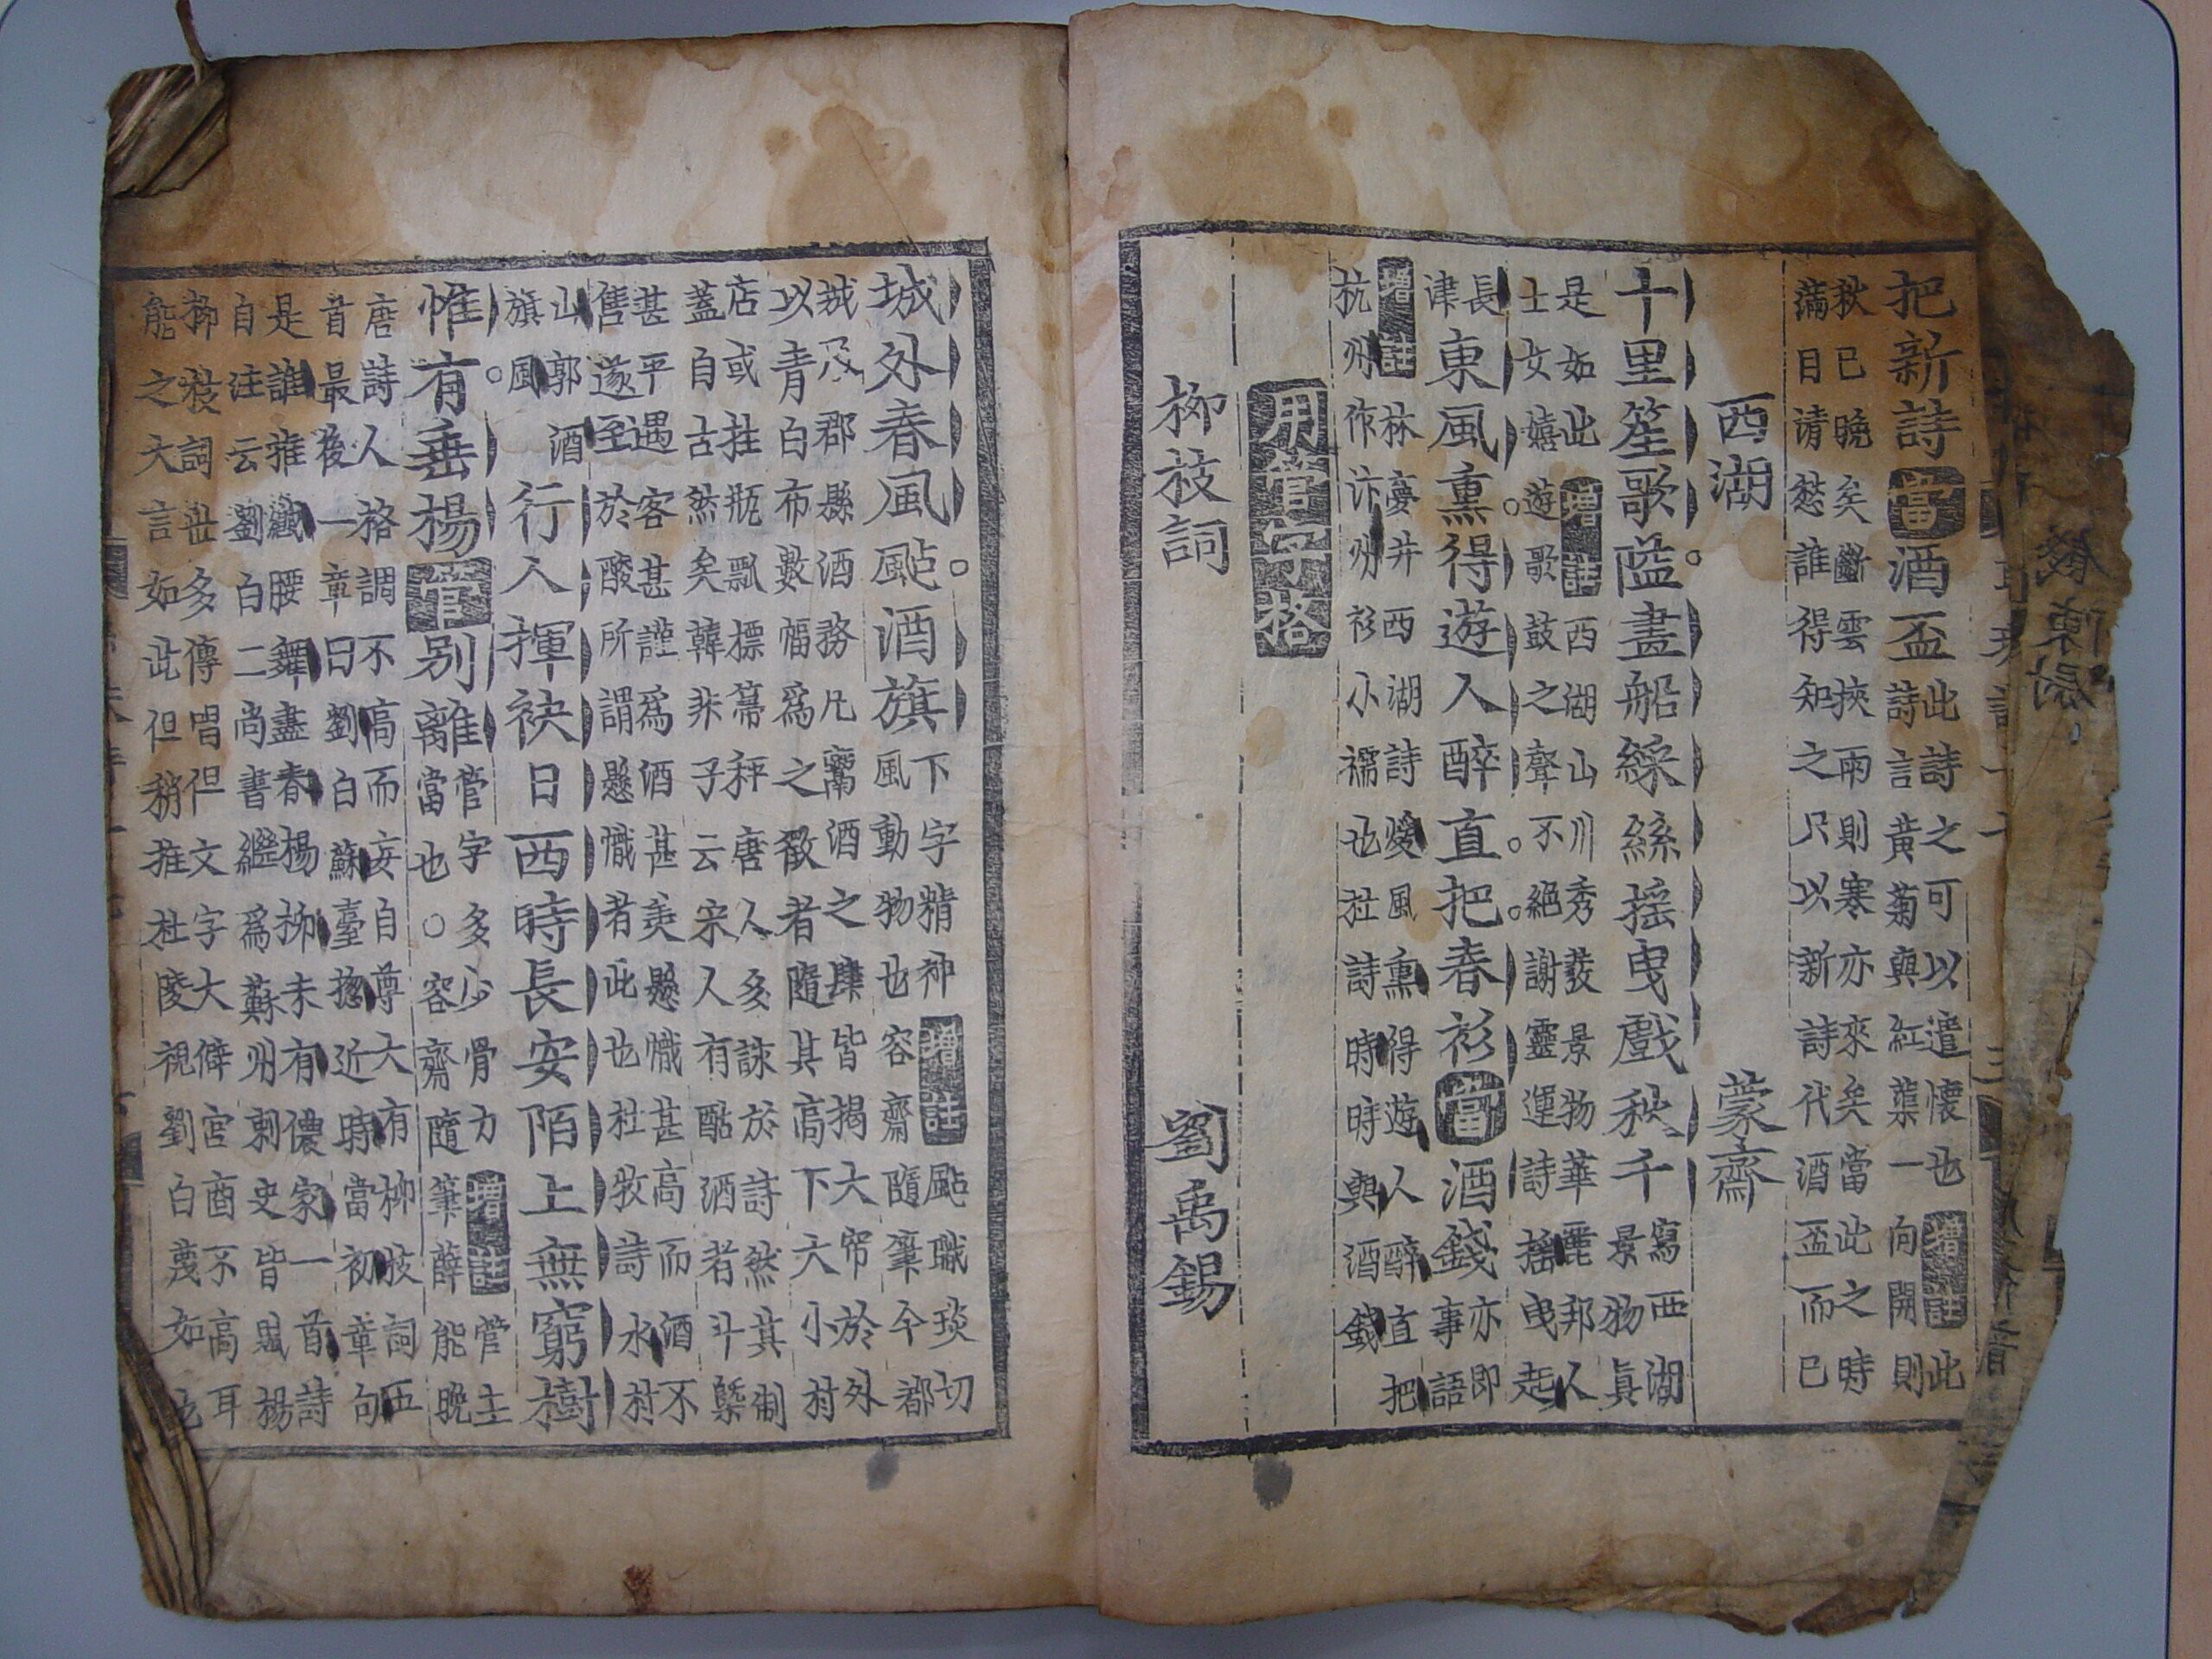 把新詩當酒盃此詩之可以遣懷也增註此
詩言黃菊與紅蕖一向開則
秋已晚矣斷雲挾雨則寒亦來矣當此之時
滿目清愁誰得知之只以新詩代酒盃而已
西湖 蒙齋
十里笙歌隘畫船綵絲搖曳戲秋千寫西湖
景物真
是如此增註西湖山川秀發景物華麗邦人
士女嬉遊歌鼓之聲不絕謝靈運詩搖曳起
長
津東風熏得遊人醉直把春衫當酒錢亦即
事語
增註林夢井西湖詩煖風熏得遊人醉直把
杭州作汴州衫小襦也杜詩時時與酒錢
用管字格
柳枝詞 劉禹錫
城外春風颭酒旗下字精神增註颭職琰切
風動物也容齋隨筆今都
城及郡縣酒務凡鬻酒之肆皆揭大帘於外
以青白布數幅爲之微者隨其高下大小村
店或挂瓶瓢標箒秤唐人多詠於詩然其制
蓋自古然矣韓非子云宋人有酤酒者斗槩
甚平遇客甚謹爲酒甚美懸幟甚高而酒不
售遂至於酸所謂懸幟者此也杜牧詩水村
山郭酒
旗風行人揮袂日西時長安陌上無窮樹
惟有垂楊管別離管字多少骨力增註管主
當也○容齋隨筆薛能晚
唐詩人格調不高而妄自尊大有柳枝詞五
首最後一章曰劉白蘇臺揔近時當初章句
是誰推纖腰舞盡春楊柳未有儂家一首詩
自注云劉白二尚書繼爲蘇州刺史皆賦楊
柳枝詞世多傳唱但文字太僻宮商不高耳
能之大言如此但稍推杜陵視劉白蔑如也